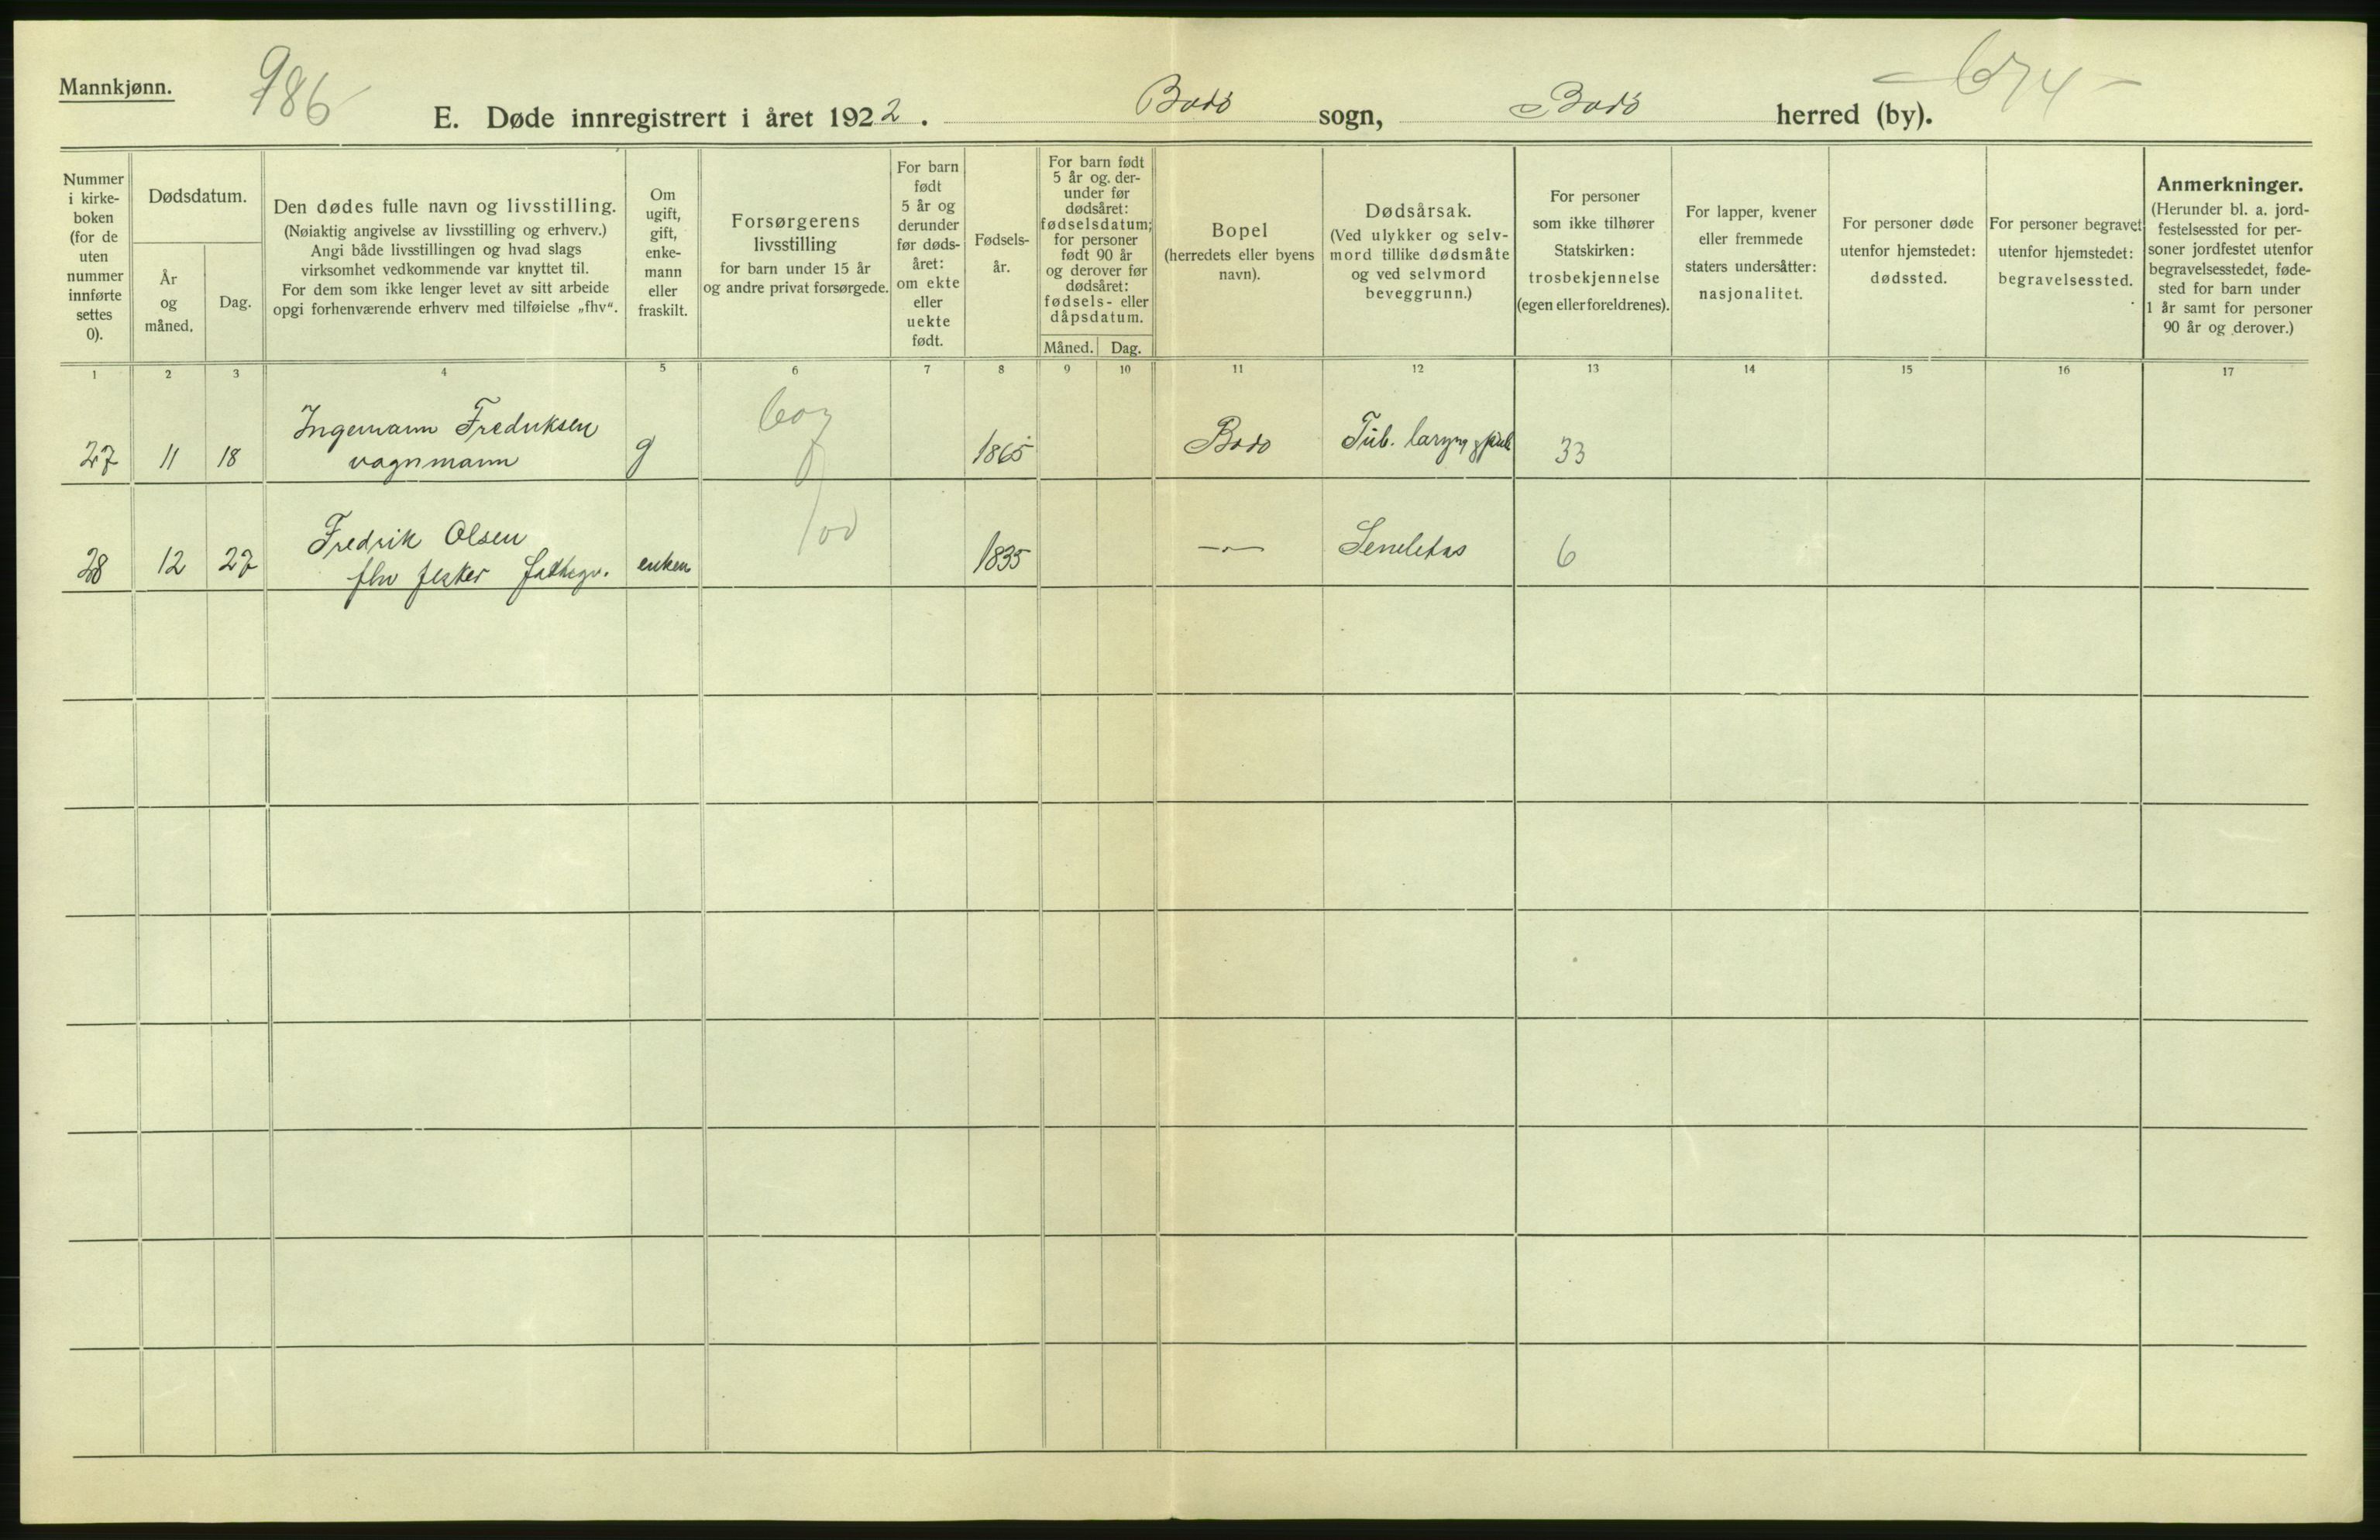 Mannkjønn.
986
E. Døde innregistrert i året 1922. Bodö sogn, Bodö herred (by).
674
Nummer
i kirke-
boken
(for de
uten
nummer
innførte
settes
0).
Dødsdatum.
År
og
måned.
Dag.
Den dødes fulle navn og livsstilling.
(Nøiaktig angivelse av livsstilling og erhverv.)
Angi både livsstillingen og hvad slags
virksomhet vedkommende var knyttet til.
For dem som ikke lenger levet av sitt arbeide
opgi forhenværende erhverv med tilføielse „fhv“.
Om
ugift,
gift,
enke-
mann
eller
fraskilt.
Forsørgerens
livsstilling
for barn under 15 år
og andre privat forsørgede.
For barn
født
5 år og
derunder
før døds-
året:
om ekte
eller
uekte
født.
Fødsels-
år.
For barn født
5 år og. der-
under før
dødsåret:
fødselsdatum;
for personer
født 90 år
og derover før
dødsåret:
fødsels- eller
dåpsdatum.
Måned. Dag.
Bopel
(herredets eller byens
navn).
Dødsårsak.
(Ved ulykker og selv-
mord tillike dødsmåte
og ved selvmord
beveggrunn.)
For personer
som ikke tilhører
Statskirken:
trosbekjennelse
(egen eller foreldrenes).
For lapper, kvener
eller fremmede
staters undersåtter:
nasjonalitet.
For personer døde
utenfor hjemstedet:
dødssted.
For personer begravet
utenfor hjemstedet:
begravelsessted.
Anmerkninger.
(Herunder bl. a. jord-
festelsessted for per-
soner jordfestet utenfor
begravelsesstedet, føde-
sted for barn under
1 år samt for personer
90 år og derover.)
1 2 3 4 5 6 7 8 9 10 11 12 13 14 15 16 17
Ingemann Fredriksen
27 11 18 vognmann g 1865 Bodo Tub. laryng 33
Fredrik Olsen
28 12 27 fhv fisker enkem 1835 —„— Senilitas 6
100